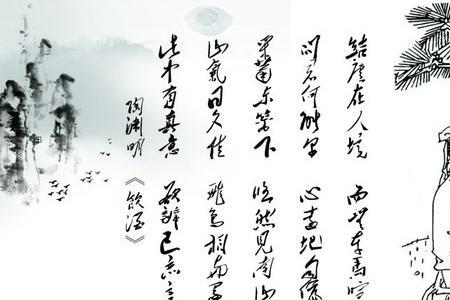 結廬在人境 而無車馬喧
問君何能爾 心遠地自偏
采菊東籬下 悠然見南山
山氣日夕佳 飛鳥相與還
此中有真意 欲辭已忘言
陶淵明《飲酒》